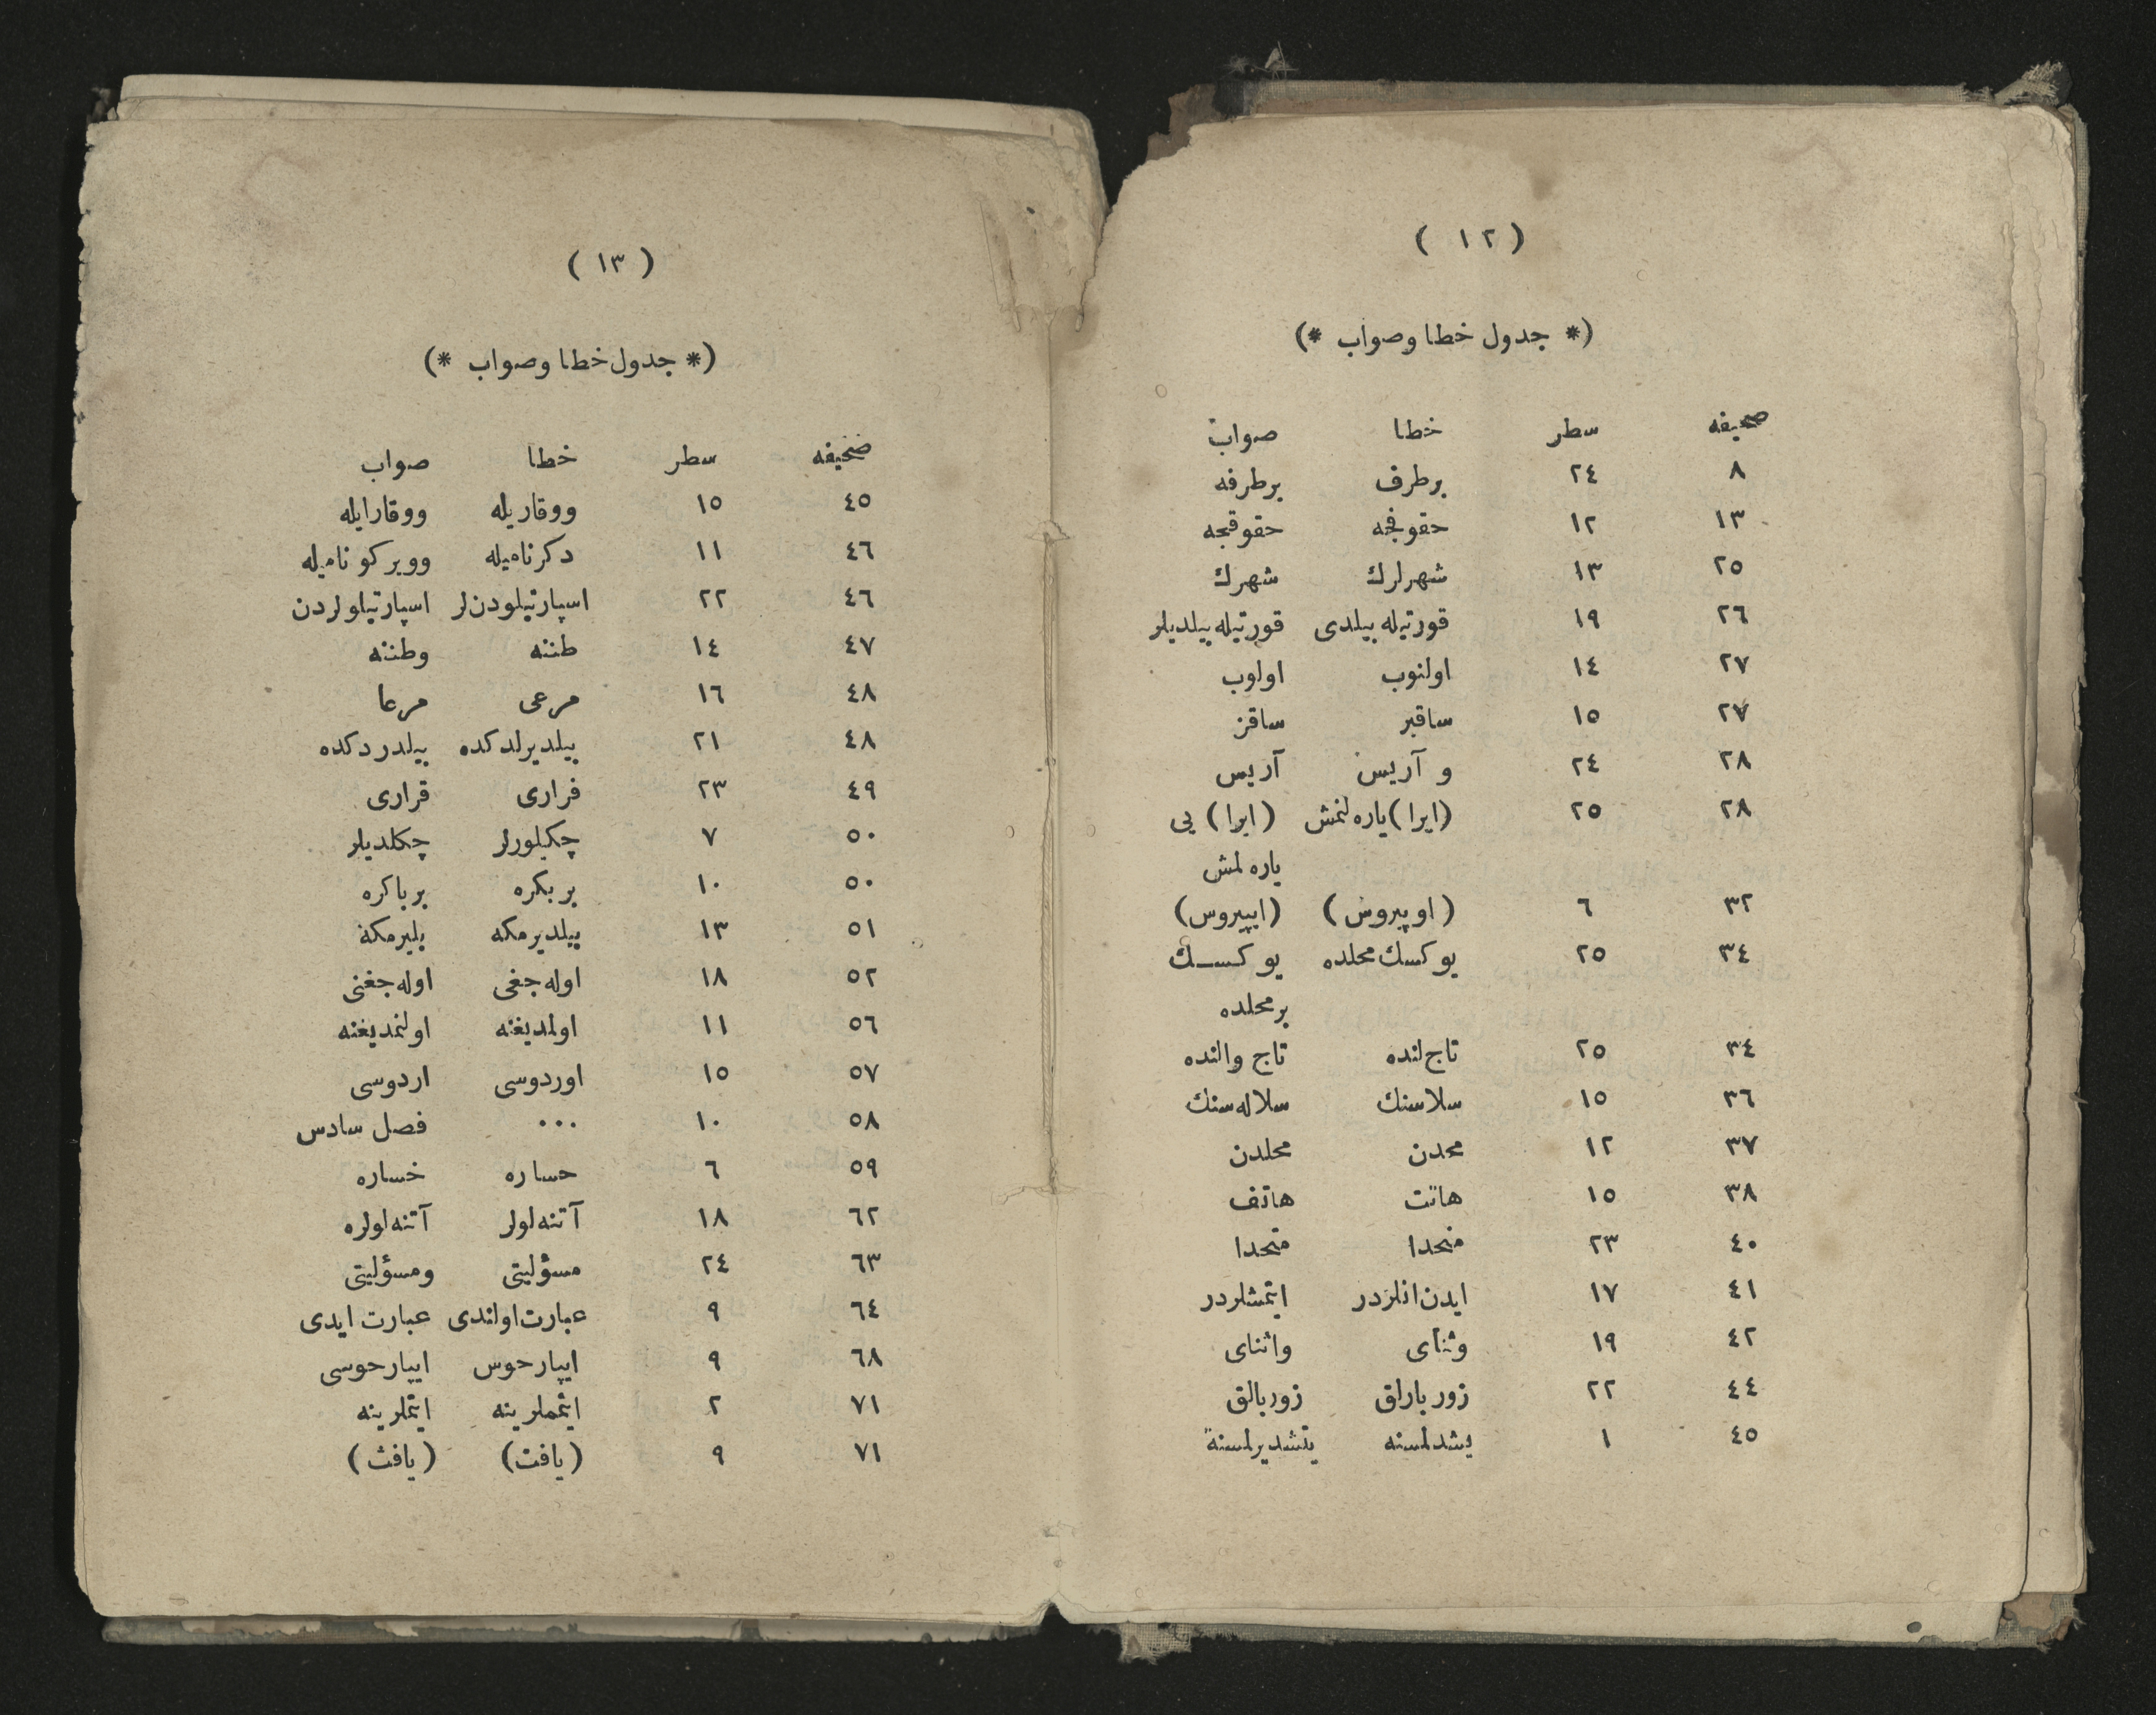 ( ١٢ )
(* جدول خطا وصواب *)
صحيفه سطر خطا صواب
٨ ٢٤ برطرف برطرفه
١٣ ١٢ حقوقجه حقوقجه
٢٥ ١٣ شهرلرك شهرك
٢٦ ١٩ قورتيله بيلدى قورتيله بيلديلر
٢٧ ١٤ اولنوب اولوب
٢٧ ١٥ ساقبر ساقز
٢٨ ٢٤ و آريس آريس
٢٨ ٢٥ (ايرا) ياره لنمش (ايرا) يى
ياره لمش
٣٢ ٦ (اوپيروس) (اپيروس)
٣٤ ٢٥ يوكسك محلده يوكسك
بر محلده
٣٤ ٢٥ تاج لنده تاج والنده
٣٦ ١٥ سلاسنك سلاله سنك
٣٧ ١٢ محدن محلدن
٣٨ ١٥ هاتت هاتف
٤٠ ٢٣ منحدا متحدا
٤١ ١٧ ايدن انلردر ايتمشلردر
٤٢ ١٩ وثناى واثناى
٤٤ ٢٢ زور باراق زوربالق
٤٥ ١ يشدلسنه يتشديرلسنه
( ١٣ )
(* جدول خطا وصواب *)
صحيفه سطر خطا صواب
٤٥ ١٥ ووقاريله ووقارايله
٤٦ ١١ دكرناميله وويركو ناميله
٤٦ ٢٢ اسپارتيلودن لر اسپارتيلولردن
٤٧ ١٤ طنته وطنته
٤٨ ١٦ مرعى مرعا
٤٨ ٢١ بيلديرلدكده بيلدردكده
٤٩ ٢٣ فرارى قرارى
٥٠ ٧ چكيلورلر چكلديلر
٥٠ ١٠ بر بكره بر باكره
٥١ ١٣ بيلديرمكه بلبرمكه
٥٢ ١٨ اوله جغى اوله جغنى
٥٦ ١١ اولمديغنه اولنمديغنه
٥٧ ١٥ اوردوسى اردوسى
٥٨ ١٠ ... فصل سادس
٥٩ ٦ حساره خساره
٦٢ ١٨ آتنه لولر آتنه لولره
٦٣ ٢٤ مسؤليتى ومسؤليتى
٦٤ ٩ عبارت اولندى عبارت ايدى
٦٨ ٩ ايپارحوس ايپارحوسى
٧١ ٢ ايتمملرينه ايتملرينه
٧١ ٩ (يافت) (يافث)